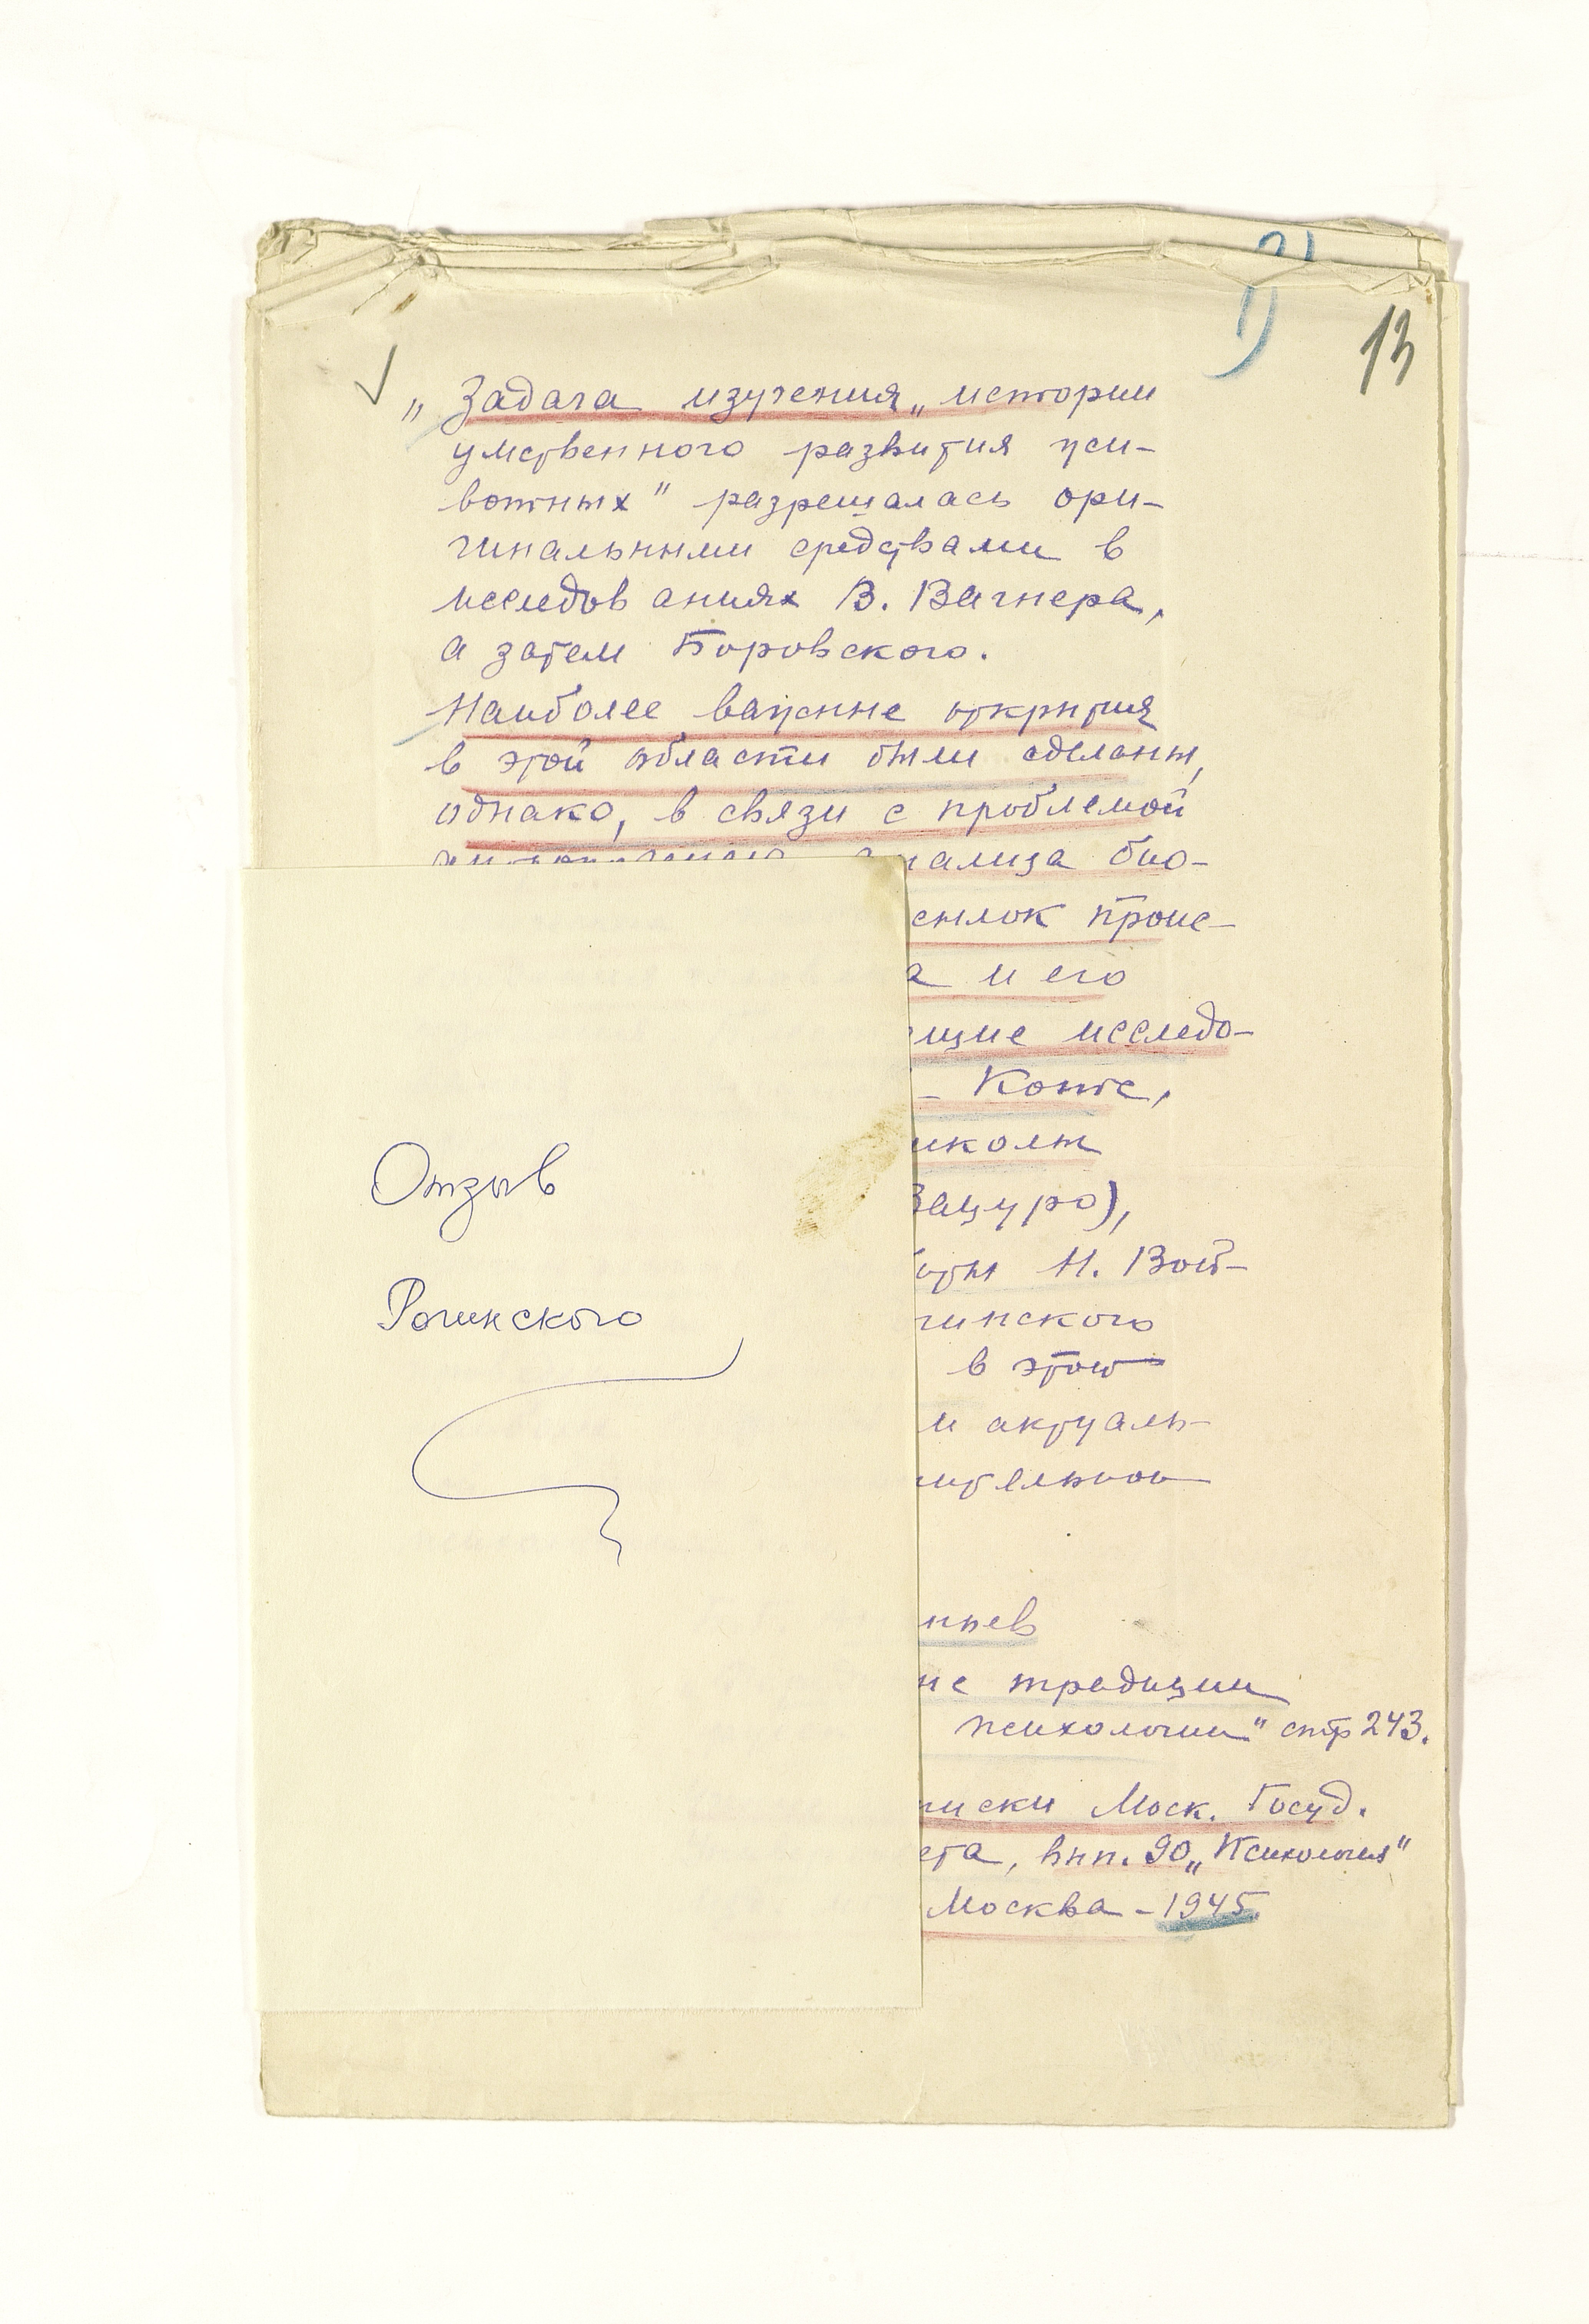 1)
13
„Задача изучения „истории
умственного развития жи-
вотных" разрешалась ори-
гинальными средствами в
исследованиях В. Вагнера,
а затем Боровского.
Наиболее важные открытия
в этой области были сделаны,
однако, в связи с проблемой
анализа био-
сылок проис-
а и его
ющие исследо-
- Котс,
школы
Вацуро),
боты Н. Вой-
гинского
в этой
и актуаль-
ительной
нтьев
ые традиции
психологии" стр 243.
писки Моск. Госуд.
ета, вып. 90 „Психология"
Москва - 1945.
Отзыв
Рогинского